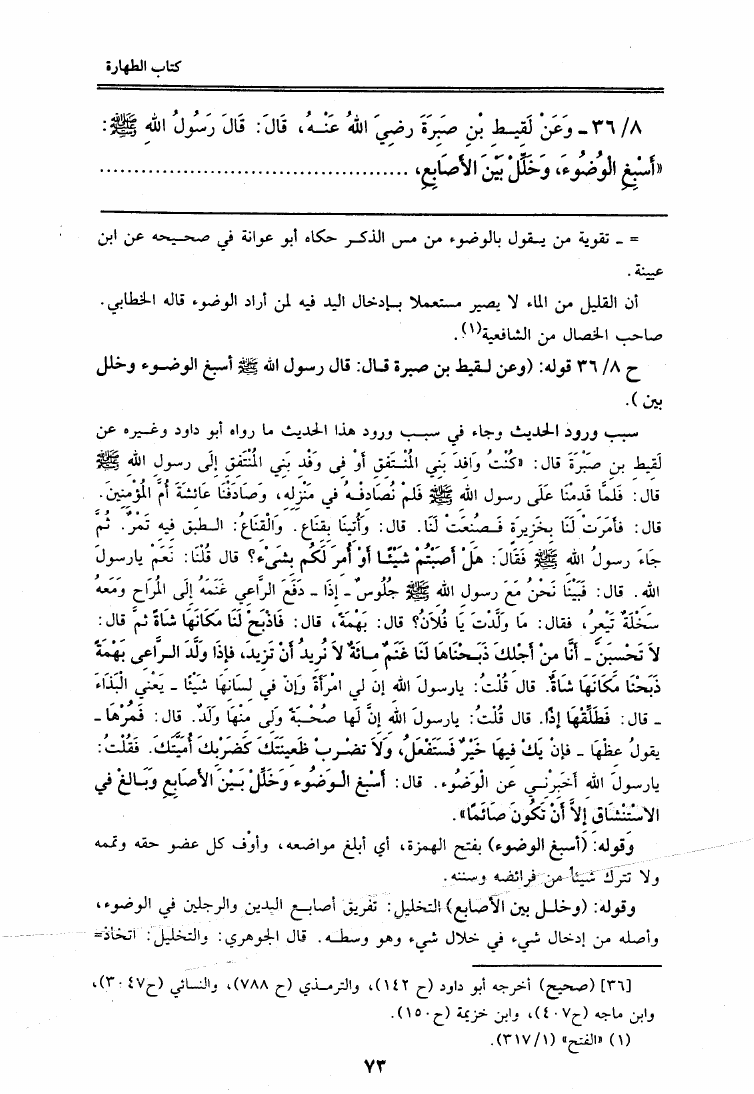 كتاب الطهارة
٣٦/٨ - وَعَنْ لَقِيـطِ بْنِ صَبِرَةَ رضِيَ اللهُ عَنْـهُ، قَالَ: قَالَ رَسُولُ اللهِ ﷺ:
«أَسْبِغِ الْوُضُوءَ، وَخَلِّلْ بَيْنَ الأَصَابِعِ، ..........................................
= - تقوية من يـقول بالوضوء من مس الذكـر حكاه أبو عوانة في صحـيحه عن ابن
عيينة.
أن القليل من الماء لا يصير مستعملا بـإدخال اليد فيه لمن أراد الوضوء قاله الخطابي.
صاحب الخصال من الشافعية(١).
ح ٣٦/٨ قوله: (وعن لـقيط بن صبرة قـال: قال رسول الله ﷺ أسبغ الوضـوء وخلل
بين).
سبب ورود الحديث وجاء في سبـب ورود هذا الحديث ما رواه أبو داود وغـيره عن
لَقِيط بنِ صَبْرَةَ قال: «كُنْتُ وَافِدَ بَنِي الْمُنْـتَفِقِ أوْ فى وَفْدِ بَنِي الْمُنْتَفِقِ إلَى رسول الله ﷺ
قال: فَلمَّا قَدِمْنَا عَلَى رسول الله ﷺ فَلَمْ نُصَادِفْـهُ في مَنْزِلِهِ، وَصَادَفْنَا عَائشَةَ أُمَّ الْمُؤْمِنِينَ.
قال: فأمَرَتْ لَنَا بِخَزِيرَةٍ فَـصُنعَتْ لَنَا. قال: وَأُتِينَا بِقِنَاعٍ. وَالْقِنَاعُ: الـطبق فِيهِ تَمْرٌ. ثُمَّ
جَاءَ رسولُ الله ﷺ فَقَالَ: هَلْ أصَبْتُمْ شَيْئًا أوْ أُمِرَ لَكُم بِشَىْءٍ؟ قال قُلْنَا: نَعَمْ يارسولَ
الله. قال: فَبَيْنَا نَحْنُ مَعَ رسولِ الله ﷺ جُلُوسٌ ـ إذَا ـ دَفَعَ الرَّاعِي غَنَمَهُ إلَى الْمُرَاحِ وَمَعَهُ
سَخْلَةٌ تَيْعِرُ، فقال: مَا وَلَّدْتَ يَا فُلاَنُ؟ قال: بَهْمَةً، قال: فَاذْبَحْ لَنَا مَكَانَهَا شَاةً ثمَّ قال:
لاَ تَحْسِبَنَّ ـ أنَّا مِنْ أجْلِكَ ذَبَـحْنَاهَا لَنَا غَنَمٌ مـائَةٌ لاَ نُرِيدُ أنْ تَزِيدَ، فإذَا ولَّدَ الـرَّاعى بَهْمَةً
ذَبَحْنَا مَكَانَهَا شَاةً. قال قُلْتُ: يارسولَ الله إن لِي امْرَأَةً وَإنَّ في لِسَانِهَا شَيْئًا ـ يَعْنِي الْبَذَاءَ
ـ قال: فَطَلِّقْهَا إذًا. قال قُلْتُ: يارسولَ الله إنَّ لَهَا صُحْـبَةً وَلِى مِنْهَا وَلَدٌ. قال: فَمُرْهَا ـ
يقولُ عِظْهَا ـ فإنْ يَكُ فِيهَا خَيْرٌ فَسَتَفْعَلُ، وَلاَ تضْـرِبْ ظَعِينَتَكَ كَضَرْبِكَ أُمَيَّتَكَ. فَقُلْتُ:
يارسولَ الله أخْبِرْنِـي عن الْوُضُوءِ. قال: أَسْبِغِ الْـوُضُوءَ وَخَلِّلْ بَـيْنَ الأَصَابِعِ وَبَـالِغْ فِي
الاسْتِنْشَاقِ إلاَّ أنْ تَكُونَ صَائِمًا».
وقوله: (أسبغ الوضوء) بفتح الهمزة، أي أبلغ مواضعه، وأوف كل عضو حقه وتممه
ولا تترك شيئاً من فرائضه وسننه.
وقوله: (وخلـل بين الأصابع) التخليل: تفريق أصابـع اليدين والرجلين في الوضوء،
وأصله من إدخال شيء في خلال شيء وهو وسطـه. قال الجوهري: والتخليل: اتخاذ=
[٣٦] (صحيح) أخرجه أبو داود (ح ١٤٢)، والترمـذي (ح ٧٨٨)، والنسائي (ح٣٠٤٧)،
وابن ماجه (ح٤٠٧)، وابن خزيمة (ح١٥٠).
(١) «الفتح» (٣١٧/١).
٧٣